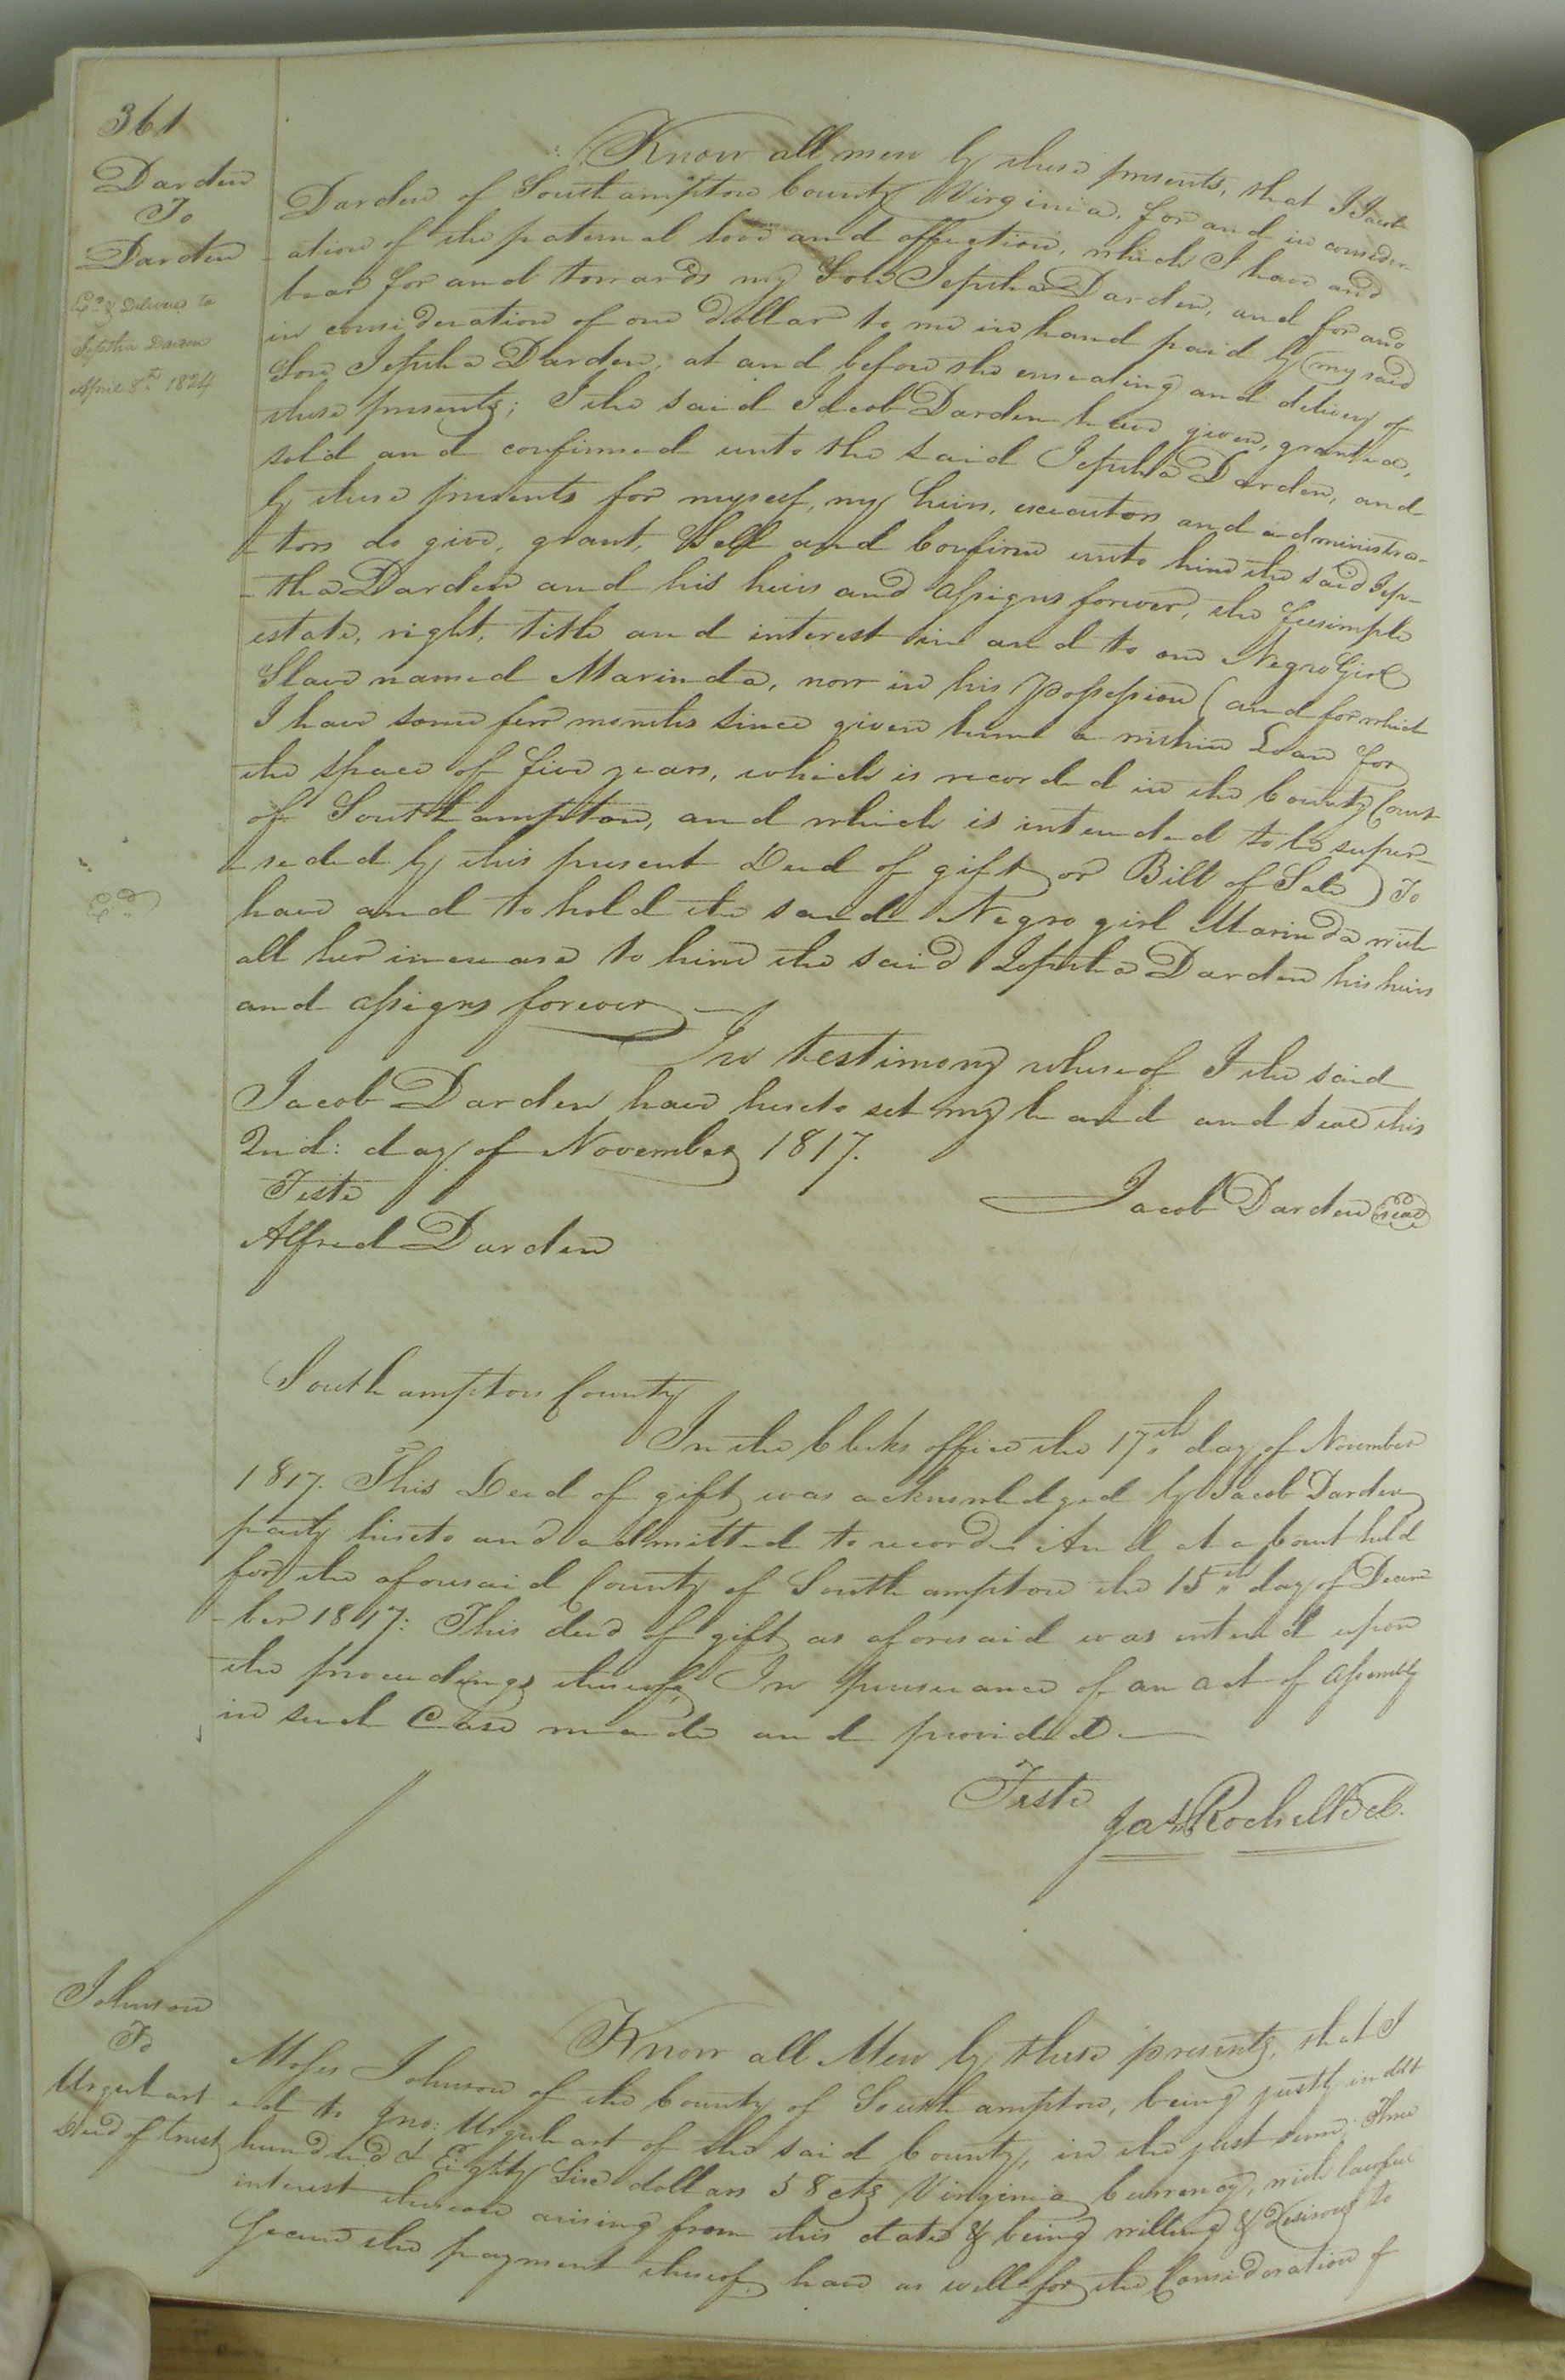 361
Darden
To
Darden
Exd & Delivered to
Jeptha Darden
April 8th 1824
Know all men by these presents, that I Jacob
Darden of Southampton County Virginia, for and in consider-
ation of the paternal love and affection, which I have and
bear for and towards my Son Jeptha Darden, and for and
in consideration of one dollar to me in hand paid by my said
Son Jeptha Darden, at and before the ensealing and delivery of
these presents; I the said Jacob Darden have given, granted,
sold and confirmed unto the said Jeptha Darden, and
by these presents for myself, my heirs, executors and administra-
tors do give, grant, Sell and Confirm unto him the said Jep-
-tha Darden and his heirs and assigns forever, the feesimple
estate, right, title and interest in and to one Negro Girl
Slave named Marinda, now in his possession (and for which
I have some few months since given him a written Loan for
the space of five years, which is recorded in the County Court
of Southampton, and which is intended to be super-
-seded by this present Deed of gift or Bill of Sale) To
have and to hold the said Negro girl Marinda with
all her increase to him the said Jeptha Darden his heirs
and assigns forever
In testimony whereof I the said
Jacob Darden have hereto set my hand and seal this
2nd: day of November 1817.
Teste
Jacob Darden seal
Alfred Darden
Exd
Southampton County
In the Clerks office the 17th day of November
1817. This Deed of gift was acknowledged by Jacob Darden
party hereto and admitted to record. And at a Court held
for the aforesaid County of Southampton the 15th day of Decem
-ber 1817: This deed of gift as aforesaid was entered upon
the proceedings thereof, In pursuance of an act of assembly
in such Case made and provided
Teste
Jas Rochelle cl.
Johnson
To
Urquhart
Deed of trust
Know all Men by these presents, that I
Moses Johnson of the County of Southampton, being justly indebt
-ed to Jno: Urquhart of the said County, in the just sum Three
hundred & Eighty Six dollars 58 cts Virginia Currency, with lawful
interest thereon arising from this date & being willing & desirous to
Secure the payment thereof have as well for the Consideration of